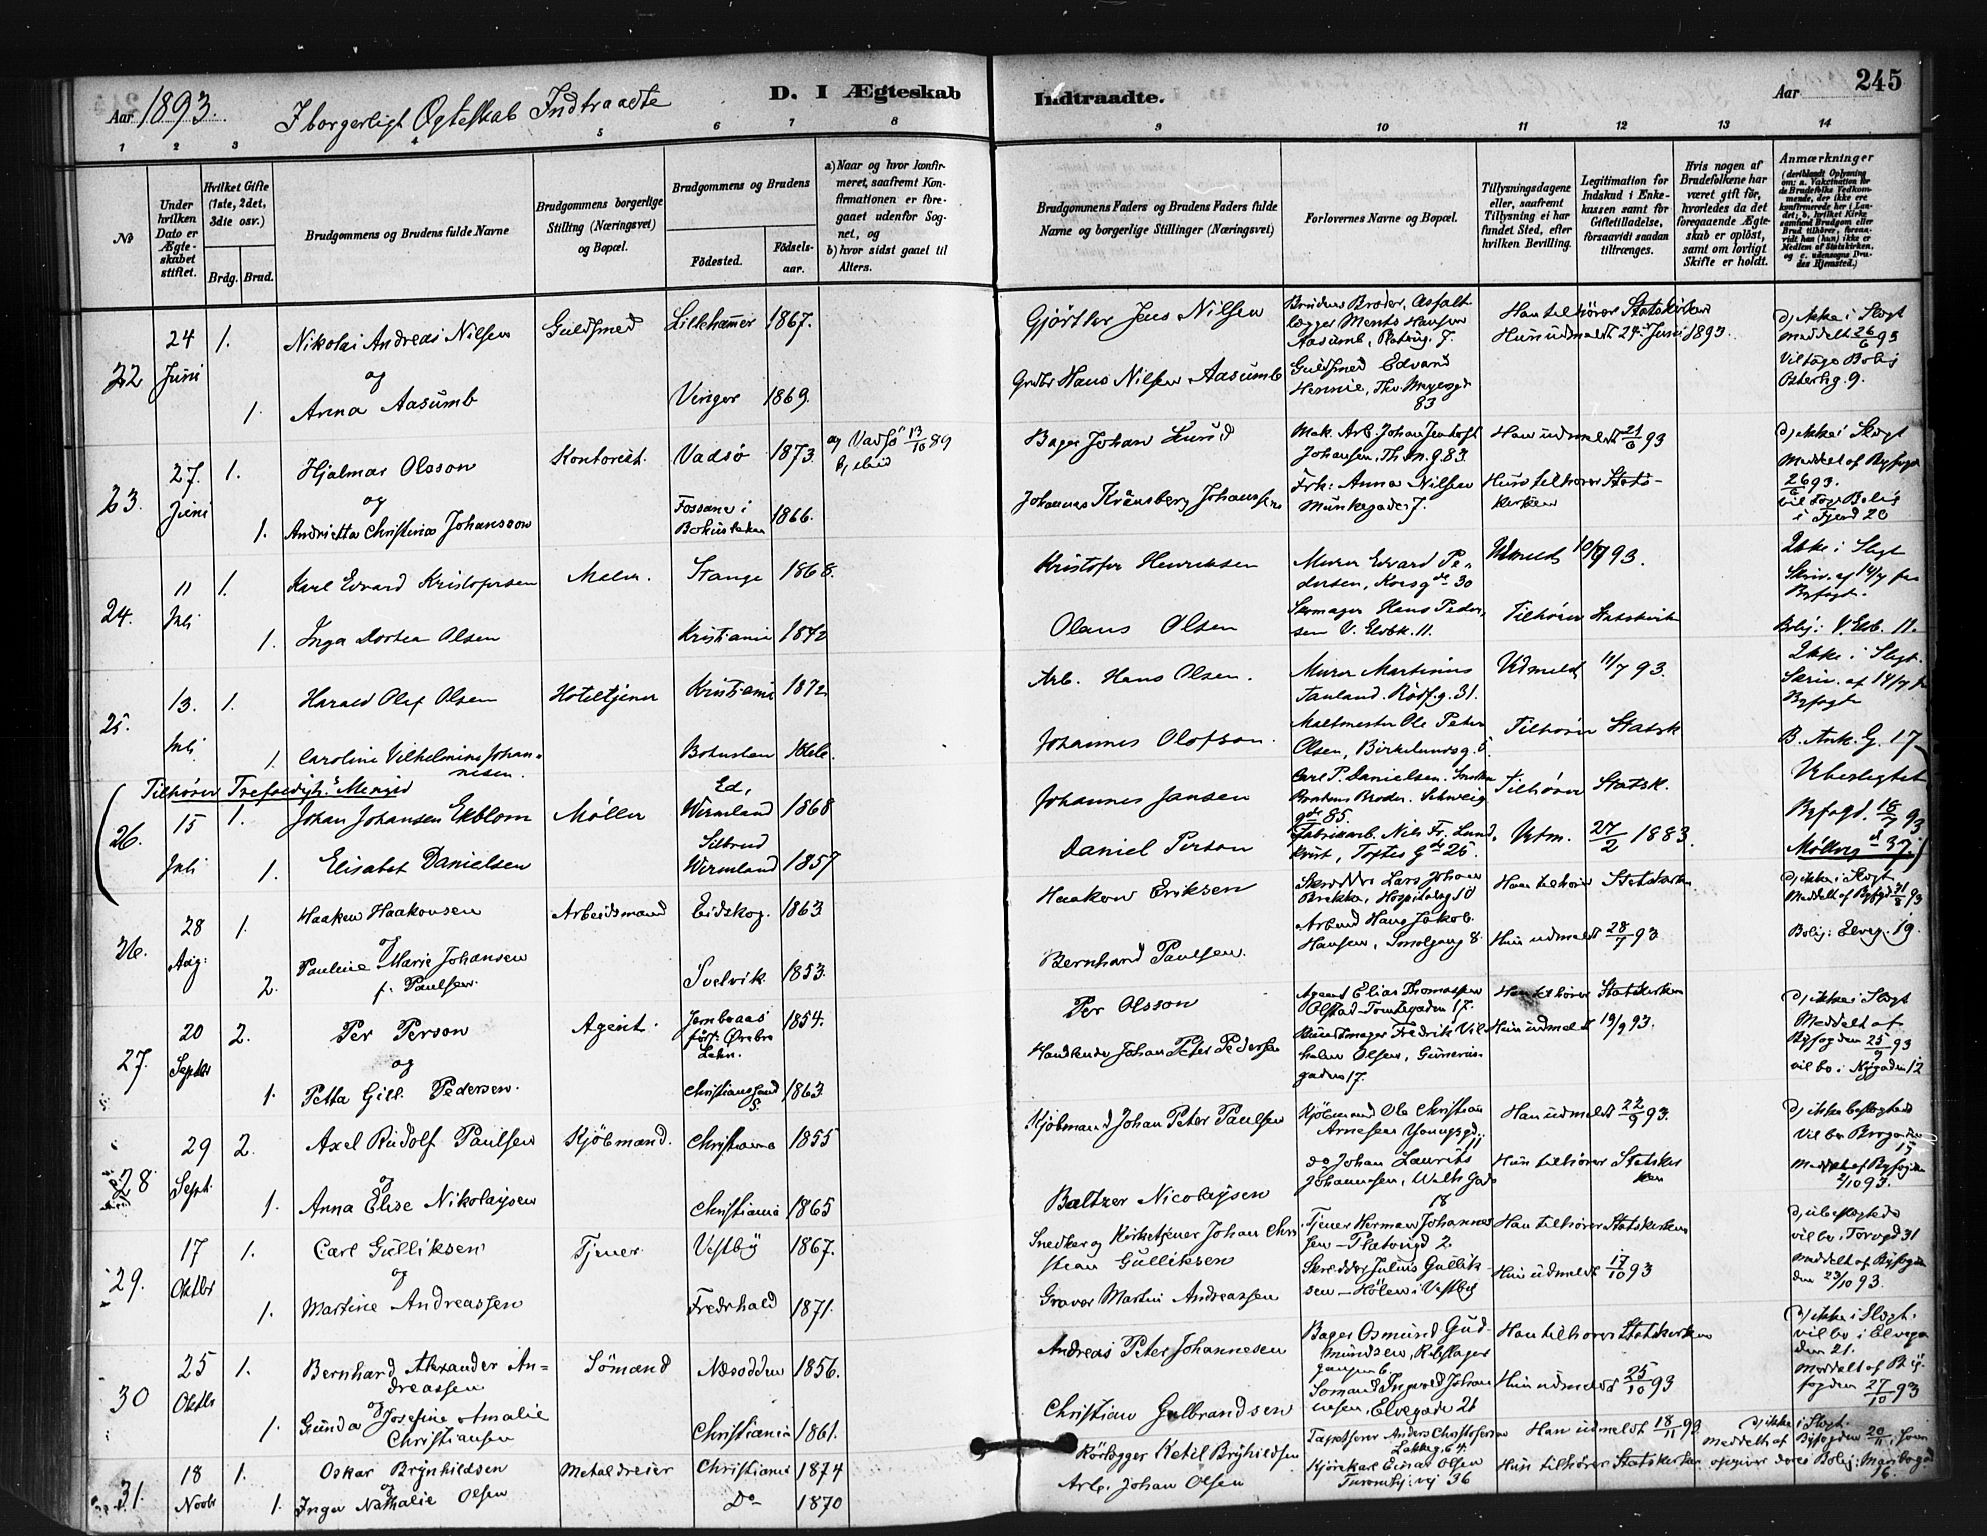 Aar 1893. I borgerligt Ogteskab Indtraadte D. I Ægteskab
Indtraadte. Aar 245
1 2 3 4 5 6 7 8
9 10 11 12 13 14
No
Under hvilken Dato er Ægteskabet stiftet.
Hvilket Gifte (1ste, 2det, 3die osv.)
Brdg. Brud.
Brudgommens og Brudens fulde Navne
Brudgommens borgerlige Stilling (Næringsvei) og Bopæl.
Brudgommens og Brudens
Födested. Födsels-aar.
a) Naar og hvor konfirmeret, saafremt Konfirmationen er foregaaet udenfor Sognet, og
b) hvor sidst gaael til Alters.
Brudgommens Faders og Brudens Faders fulde Navne og borgerlige Stillinger (Næringsvei)
Forlovernes Navne og Bopæl.
Tillysningsdagene eller, saafremt Tillysning ei har fundet Sted, efter hvilken Bevilling.
Legitimation for Indskud i Enkekassen samt for Giftetilladelse, forsaavidt saadan tiltrænges.
Hvis nogen af Brudefolkene har været gift för, hvorledes da det foregaaende Ægteskab er oplöst, samt om lovligt Skifte er holdt.
Anmærkninger (deriblandt Oplysning om: a. Vakcination for de Brudefolks Vedkommende, der ikke ere konfirmerede her i Landet; b. hvilket Kirkesamfund Brudgom eller Brud tilhörer, forsaavidt han (hun) ikke er Medlem af Statskirken, og c. udensogns Brudes Hjemsted.)
22 24 Juni 1. Nikolai Andreas Nilsen Guldsmed Lillehamer 1867. Gjörtler Jens Nilsen Brudens Broder, Asfaltlægger Hansen Aasumb, Platoug. 7. Han tilhører Statskirken
og
1. Anna Aasumb Vinger 1869. Hans Nilsen Aasumb Guldsmed Edvard Hennie, Thv. Meyersgd 83 Hun udmeldt 24. Juni 1893.
ikke i Slegt meddelt 26/6 93 Vil tage Bolig Osterhg. 9.
23. 27. Juni 1. Hjalmar Olsson Kontorist. Vadsö 1873. a) Vadsö 13/10 89 Bager Johan Lund Johansen, Th. M. g. 83. Han udmeldt 21/6 93
og
1. Andrietta Christina Johansson Fossane i 1866. Johannes Johanssen Frk: Anna Nilsen Munkegade 7. Hun tilhører Statskirken
ikke i Slegt Meddelt af Byfogd 26 93. vil tage Bolig i 20
24. 11 Juli 1. Karl Edvard Kristofersen Maler. Stange 1868. Kristofer Henriksen Murer Edvard Pedersen, Korsgde 30 Udmeldt 10/7 93.
1. Inga Dortea Olsen Kristiania 1872 Olaus Olsen Skomager Hans Pedersen V. Elvbk. 11. Tilhører Statskirk
Ikke i Slegt Skriv. af 14/7 fra Byfogd. Bolig: V. Elvb. 11.
25. 13. Juli 1. Harald Olaf Olsen Hoteltjener Kristiania 1872 Arb. Hans Olsen. Murer Martinius Rödf.g. 31. Udmeldt 11/7 93.
1. Caroline Vilhelmine Johannesen. Bohuslen 1866. Johannes Olofson. Maltmester Ole Peter Olsen, Birkelundsg. 5 Tilhører Statsk
Ikke i Slegt. Skriv. af 14/7 fra Byfogde B. Ank. G. 17
Tilhører "Trefoldigh." Menigd
26. 15 Juli 1. Johan Johansen Ekblom Møller Ed, Wermland 1868 Johannes Jansen Carl P. Danielsen. Brudens Broder. Schweigde 85. Tilhører Statsk.
1. Elisabet Danielsen Silbrud Wermland 1857 Daniel Person Fabrikarb. Nils Fr. Lundkvist, Toftes Gde 25. Utm. 27/2 1883.
Ubeslegtet Byfogd. 18/7 93 Møllerg. 37.
26. 28 Aug: 1. Haaken Haakonsen Arbeidsmand Eidskog. 1863 Haakon Eriksen Skrædder Lars Johan Brekke, Hospitalsg 10 Han tilhører Statskirken
og
2. Pauline Marie Johansen f. Paulsen. Svelvik 1853. Bernhard Paulsen. Arbmd Hans Jakob Hansen, 8. Hun udmeldt 28/7 93
ikke i Slegt Meddelt af Byfogd 31/8 93 Bolig: Elveg. 19.
27. 20 Septbr 2. Per Person Agent. Jernboaas Ørebro Lehn. 1854. Per Olsson Agent Elias Thomassen Olstad Tomtegaden 17. Han tilhører Statskirken
og
1. Petta Gill. Pedersen. Christianssand S. 1863. Handlende Johan Peter Pedersen Fredrik Vilhelm Olsen, gaden 17. Hun udmeldt 19/9 93.
ikke i Slegt Meddelt af Byfogden 25/9 93 vil bo i Nygaden 12
28 29 Sept. 2. Axel Rudolf Paulsen Kjöbmand. Christiania 1855 Kjöbmand Johan Peter Paulsen Kjöbmand Ole Christian Arnesen Youngsgd: 11 Han udmeldt 22/9 93.
og
1. Anna Elise Nikolaysen Christiania 1865 Baltzer Nicolaysen do Johan Laurits Johannesen, Gade 18 Hun tilhører Statskirken
ikke beslegtede Vil bo 15 Meddelt af Byfogden 2/10 93.
29. 17 Oktbr 1. Carl Gulliksen Tjener Vestby 1867. Snedker og Kirketjener Johan Christian Gulliksen Tjener Herman Johannesen – Platougd 2 Han tilhører Statskirken
og
1. Martine Andreassen Fredrhald 1871. Graver Martin Andreassen Skrædder Julius Gulliksen – Hölen i Vestby Hun udmeldt 17/10 93
ubeslegtede vil bo Torvgd 31 meddelt af Byfogden den 23/10 93.
30 25 Oktbr 1. Bernhard Alexander Andreassen Sömand Næsodden 1856. Andreas Peter Johannesen Bager Osmund Gudmundsen, Rebslagergangen 6 Han tilhører Statskirken
og
1. Gunda Josefine Amalie Christiansen Christiania 1861. Christian Gulbrandsen Somand Ingvald Johannesen, Elvegade 21 Hun udmeldt 25/10 93
ikke i Slegt. vil bo i Elvegaden 21. Meddelt af Byfogden 27/10 93
31. 18 Novbr 1. Oskar Brynhildsen Metaldreier Christiania 1874 Rörlægger Ketil Brynhildsen Tapetserer Anders Christofersen Lakkeg. 64. Han udmeldt 18/11 93
og
1. Inga Nathalie Olsen Do 1870 Arb. Johan Olsen Kjörekarl Einar Olsen vej 36 Hun tilhører Statskirken
ikke i Slegt. meddelt af Byfogden 20/11, som opgiver deres Bolig: Maribogad 16.